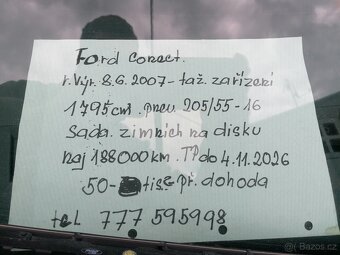 Ford Conect.
r. Výr. 8.6. 2007 - taž. zařízení
1795cm. pneu 205/55-16
Sada. zimních na disku
naj 188000 km. TP do 4.11.2026
50- tis. př. dohoda
tel 777 595998
Bazos.cz